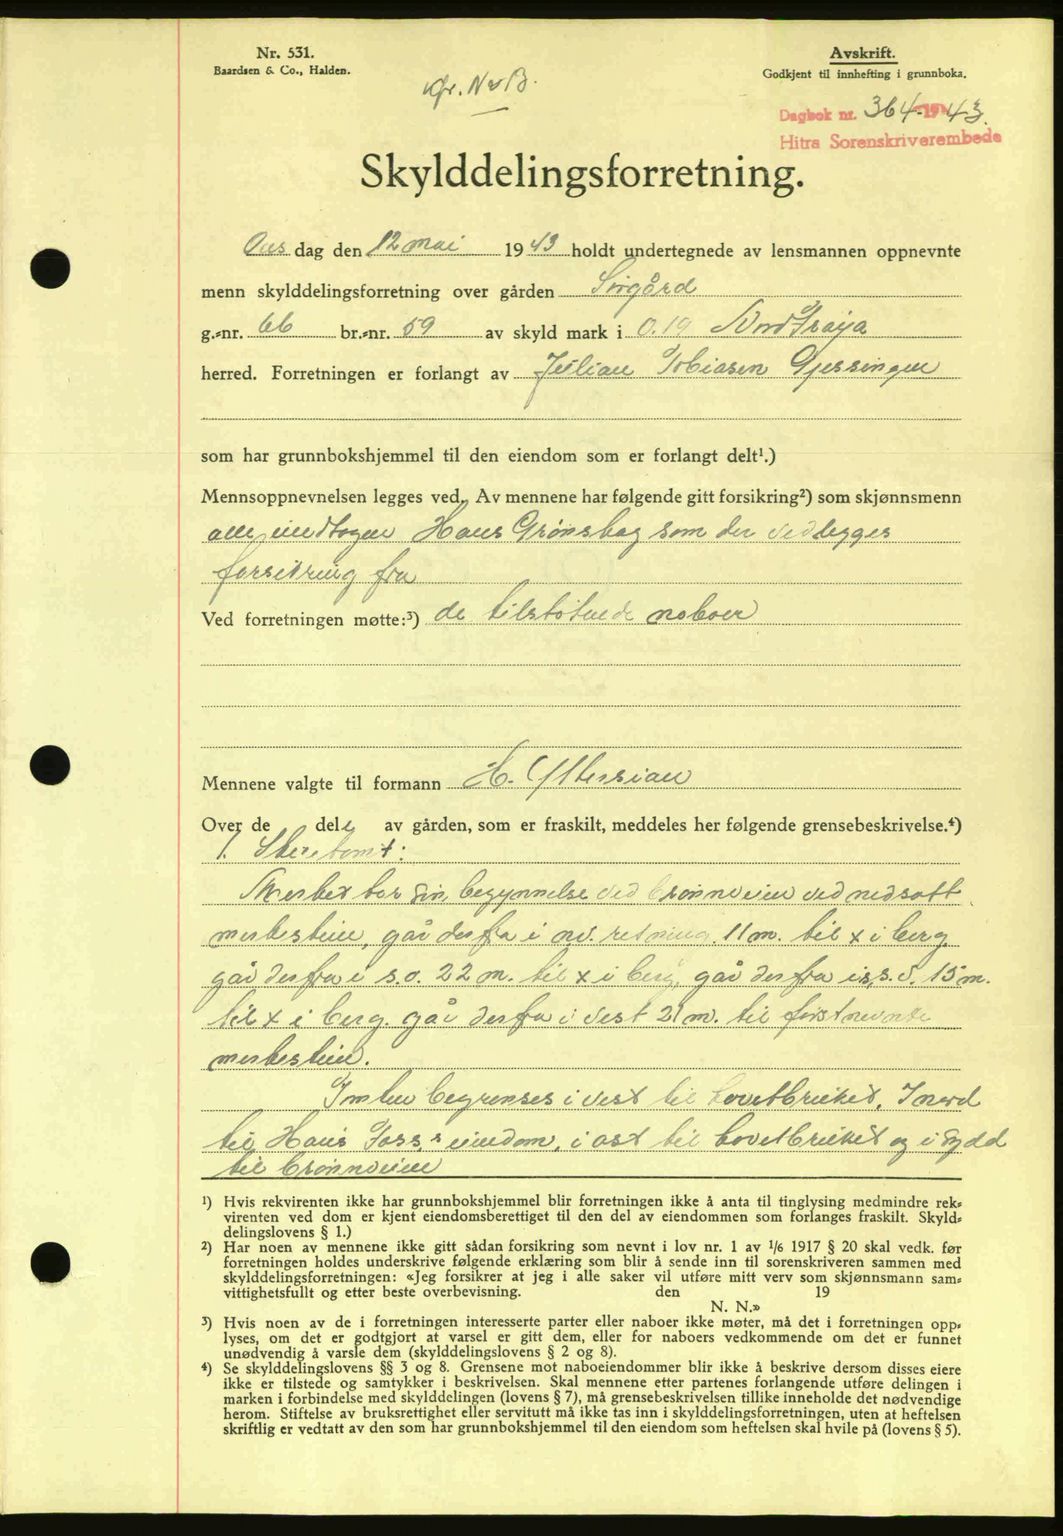 Nr. 531.
Baardsen & Co., Halden.
Avskrift.
Godkjent til innhefting i grunnboka.
Dagbok nr. 364-1943.
Hitra Sorenskriverembede
Skylddelingsforretning.
Ons dag den 12 mai 1943 holdt undertegnede av lensmannen oppnevnte
menn skylddelingsforretning over gården Sørgård
g.-nr. 66 br.-nr. 59 av skyld mark i 0.19 Nord Frøya
herred. Forretningen er forlangt av Julian Tobiasen Gjessingen
som har grunnbokshjemmel til den eiendom som er forlangt delt¹.)
Mennsoppnevnelsen legges ved. Av mennene har følgende gitt forsikring²) som skjønnsmenn
alle undtagen Hans Grønskag som der vedlegges
forsikring fra
Ved forretningen møtte:³) de tilstøtende naboer
Mennene valgte til formann H. Yttersian
Over de dele av gården, som er fraskilt, meddeles her følgende grensebeskrivelse.⁴)
1.
Merket tar sin begynnelse ved brønnveien ved nedsatt
merkestein, går derfra i nv. retning 11 m. til x i berg
går derfra i s.o. 22 m. til x i berg, går derfra i s.s.v. 15 m.
til x i berg. går derfra i vest 21 m. til førstnevnte
merkestein.
Tomten begrenses i vest til hovetbruket, I nord
til Hans Foss's eiendom, i ost til hovetbruket og i sydd
til brønnveien
¹) Hvis rekvirenten ikke har grunnbokshjemmel blir forretningen ikke å anta til tinglysing medmindre rek-
virenten ved dom er kjent eiendomsberettiget til den del av eiendommen som forlanges fraskilt. Skyld-
delingslovens § 1.)
²) Har noen av mennene ikke gitt sådan forsikring som nevnt i lov nr. 1 av 1/6 1917 § 20 skal vedk. før
forretningen holdes underskrive følgende erklæring som blir å sende inn til sorenskriveren sammen med
skylddelingsforretningen: «Jeg forsikrer at jeg i alle saker vil utføre mitt verv som skjønnsmann sam-
vittighetsfullt og etter beste overbevisning. den 19
N. N.»
³) Hvis noen av de i forretningen interesserte parter eller naboer ikke møter, må det i forretningen opp-
lyses, om det er godtgjort at varsel er gitt dem, eller for naboers vedkommende om det er funnet
unødvendig å varsle dem (skylddelingslovens § 2 og 8).
⁴) Se skylddelingslovens §§ 3 og 8. Grensene mot naboeiendommer blir ikke å beskrive dersom disses eiere
ikke er tilstede og samtykker i beskrivelsen. Skal mennene etter partenes forlangende utføre delingen i
marken i forbindelse med skylddelingen (lovens § 7), må grensebeskrivelsen tillike inneholde det nødvendige
herom. Stiftelse av bruksrettighet eller servitutt må ikke tas inn i skylddelingsforretningen, uten at heftelsen
skriftlig er vedtatt av den som har grunnbokshjemmel til den eiendom som heftelsen skal hvile på (lovens § 5).